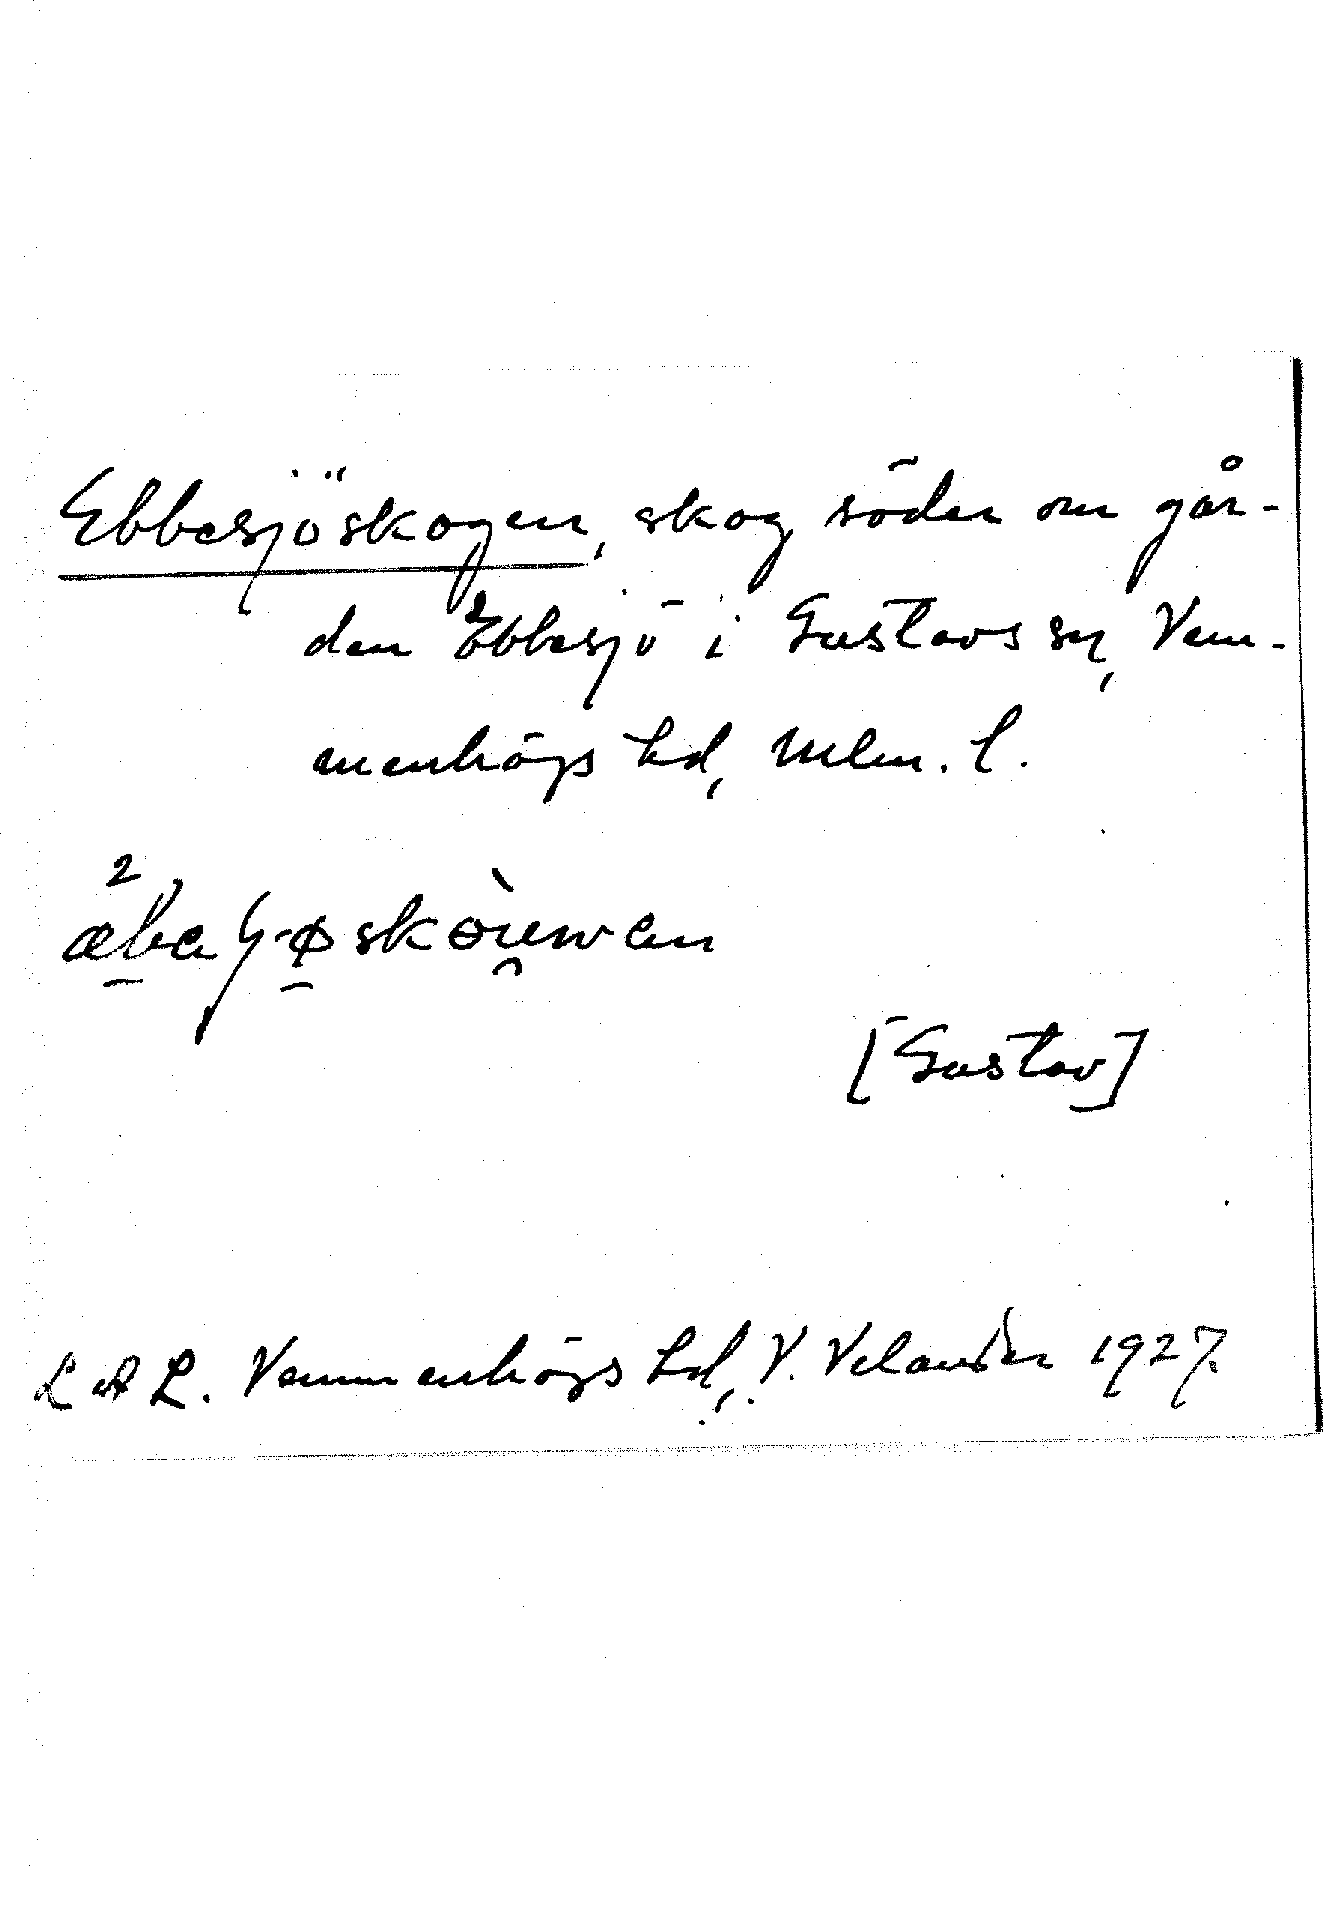 Ebbesjöskogen, skog söder om går-
den Ebbesjö i Gustavs sn, Vem-
menhögs hd, Mlm. l.
[Gustav]
LAL. Vemmenhögs hd, V. Velander 1927.